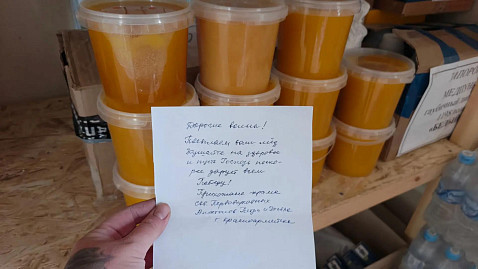 Дорогие воины!
Посылаем вам мёд
Кушайте на здоровье
и пусть Господь поско-
рее дарует всем
Победу!
Прихожане храма
свв. Первоверховных
Апостолов Петра и Павла
г. Красноармейска